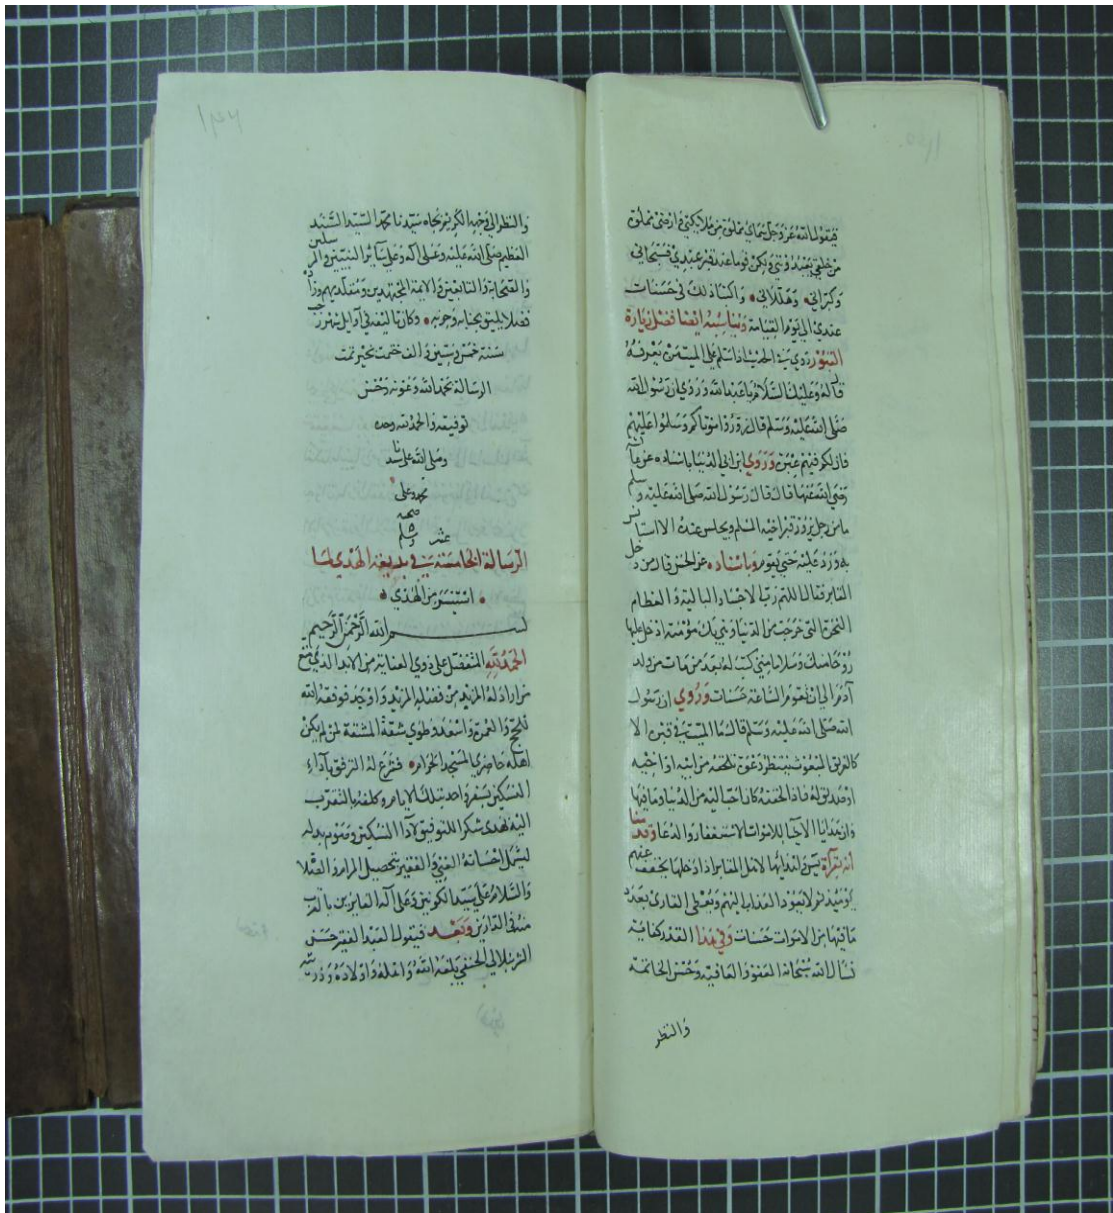 فيقول الله عز وجل سماي مملوة من ملايكتي وارضي مملوة
من خلقي يعبدوني ولكن قوما عند قبر عبدي فسبحاني
وكبراني وهللاني واكتبا ذلك في حسنات
عندي الى يوم القيامة ويناسبه ايضا فضل زيارة
القبور روي في الحديث اذا سلم على الميت من يعرفه
قال له وعليك السلام يا عبد الله وروي ان رسول الله
صلى الله عليه وسلم قال زوروا موتاكم وسلموا عليهم
فان لكم فيهم عبرة وروي ابن ابي الدنيا باسناده عن عائشة
رضي الله عنها قالت قال رسول الله صلى الله عليه وسلم
ما من رجل يزور قبر اخيه المسلم ويجلس عنده الا استانس
به ورد عليه حتى يقوم وباسناده عن الحسن قال من دخل
المقابر فقال اللهم رب الاجساد البالية والعظام
النخرة التي خرجت من الدنيا وهي بك مؤمنة ادخل عليها
روحا منك وسلاما مني كتب له بعدد من مات من ولد
آدم الى ان تقوم الساعة حسنات وروي ان رسول
الله صلى الله عليه وسلم قال ما الميت في قبره الا
كالغريق المبغوث ينتظر دعوة تلحقه من ابيه او اخيه
او صديق له فاذا لحقته كان احب اليه من الدنيا وما فيها
وان هدايا الاحياء للاموات الاستغفار والدعا وقدمنا
انه بقرآة يس واهدايها لاهل المقابر اذا دخلها يخفف عنهم
يومئذ ثم لا يعود العذاب اليهم ويعطى القاري بعدد
ما فيها من الاموات حسنات وفي هذا القدر كفاية
نسال الله سبحانه العفو والعافية وحسن الخاتمة
والنظر
والنظر الى وجهه الكريم بجاه سيدنا محمد السيد السند
العظيم صلى الله عليه وعلى آله وعلى سائر النبيين والمرسلين
والصحابة والتابعين والائمة المجتهدين ومقلديهم
فضلا يليق بجنابه وحزبه وكان تاليفه في اوايل شهر رجب
سنة خمس وستين والف ختمت بخير تمت
الرسالة بحمد الله وعونه وحسن
توفيقه والحمد لله وحده
وصلى الله على سيدنا
محمد وعلى
صحبه
وسلم
الرسالة الخامسة عشر في بديعة الهدي لما
استيسر من الهدي
بسم الله الرحمن الرحيم
الحمد لله المتفضل على ذوي العناية من الابد الذي منح
من اراد له المزيد من فضله المزيد واوجد فوفقه الله
للحج والعمرة واسعد وطوي شقة المشقة لمن لم يكن
اهله حاضري المسجد الحرام فشرع له الترفق بآداء
النسكين بسفر واحد بتلك الايام وكلفه بالتقرب
اليه بهدي شكرا للتوفيق لاداء النسكين وصوم بدله
ليشمل احسانه الغني والفقير بتحصيل المرام والصلاة
والسلام على سيد الكونين وعلى آله الفايزين بالقرب
منه في الدارين وبعد فيقول العبد الفقير حسن
الشرنبلالي الحنفي بلغه الله واهله واولاده وذريته